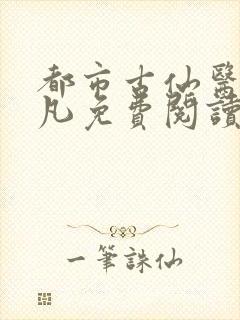 都市古仙醫
凡免費閱讀
一筆誅仙